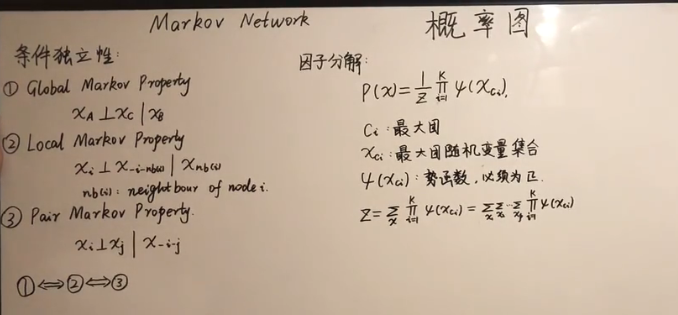 Markov Network
概率图
条件独立性:
① Global Markov Property
x_A ⊥ x_C | x_B
② Local Markov Property
x_i ⊥ x_{-i-nb(i)} | x_{nb(i)}
nb(i): neightbour of node i.
③ Pair Markov Property.
x_i ⊥ x_j | x_{-i-j}
① ⟺ ② ⟺ ③
因子分解:
P(x) = 1/Z ∏_{i=1}^{K} ψ(x_{ci}).
Ci: 最大团
x_{ci}: 最大团随机变量集合
ψ(x_{ci}): 势函数, 必须为正.
Z = ∑_x ∏_{i=1}^{K} ψ(x_{ci}) = ∑_{x_1} ∑_{x_2} ... ∑_{x_p} ∏_{i=1}^{K} ψ(x_{ci})